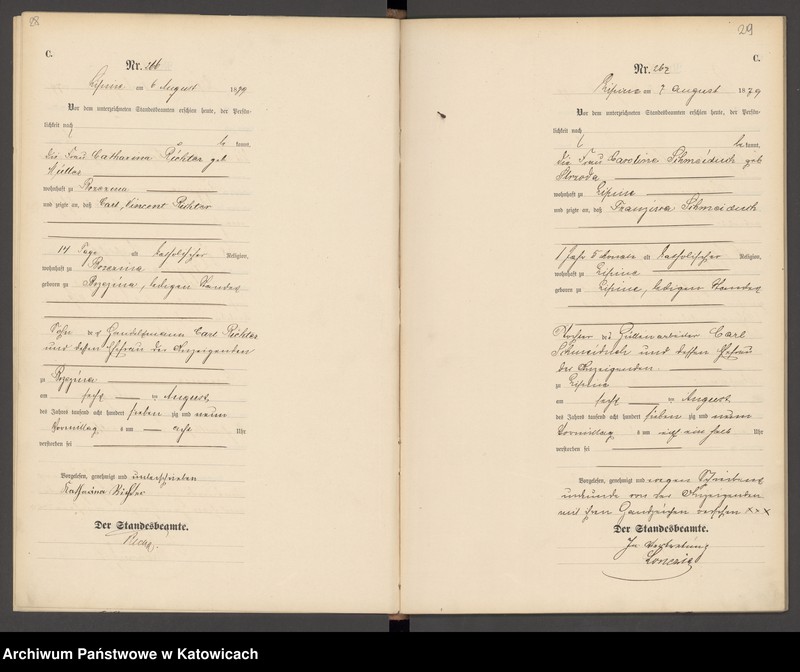 28
C.
Nr. 266
Lipine am 6 August 1879
Vor dem unterzeichneten Standesbeamten erschien heute, der Persön-
lichkeit nach
kannt,
die Frau Catharina Richter geb
wohnhaft zu
und zeigte an, daß Carl, Vincent Richter
14 Tage alt katholischer Religion,
wohnhaft zu
geboren zu ledigen Standes
Sohn des Handelsmanns Carl Richter
und dessen Ehefrau der Anzeigenden
zu
am sechs ten August
des Jahres tausend acht hundert sieben zig und neun
Vormittag s um acht Uhr
verstorben sei
Vorgelesen, genehmigt und unterschrieben
Katharina Richter
Der Standesbeamte.
29
C.
Nr. 267
Lipine am 7 August 1879
Vor dem unterzeichneten Standesbeamten erschien heute, der Persön-
lichkeit nach
be kannt,
die Frau Caroline geb
wohnhaft zu Lipine
und zeigte an, daß Franziska
1 Jahr 5 Monate alt katholischer Religion,
wohnhaft zu Lipine
geboren zu Lipine, ledigen Standes
Tochter des Hüttenarbeiter Carl
und dessen Ehefrau
der Anzeigenden
zu Lipine
am sechs ten August
des Jahres tausend acht hundert sieben zig und neun
Vormittag s um ein halb Uhr
verstorben sei
Vorgelesen, genehmigt und wegen Schreibens
unkunde von der Anzeigenden
mit ihren Handzeichen versehen xxx
Der Standesbeamte.
In Vertretung
Archiwum Państwowe w Katowicach